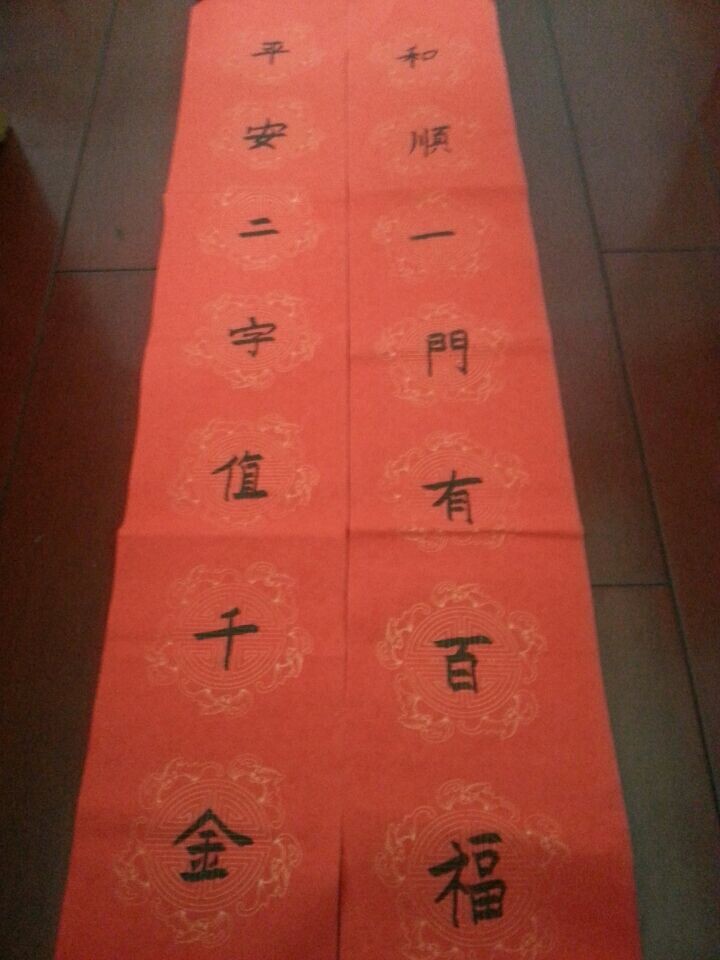 和順一門有百福
平安二字值千金